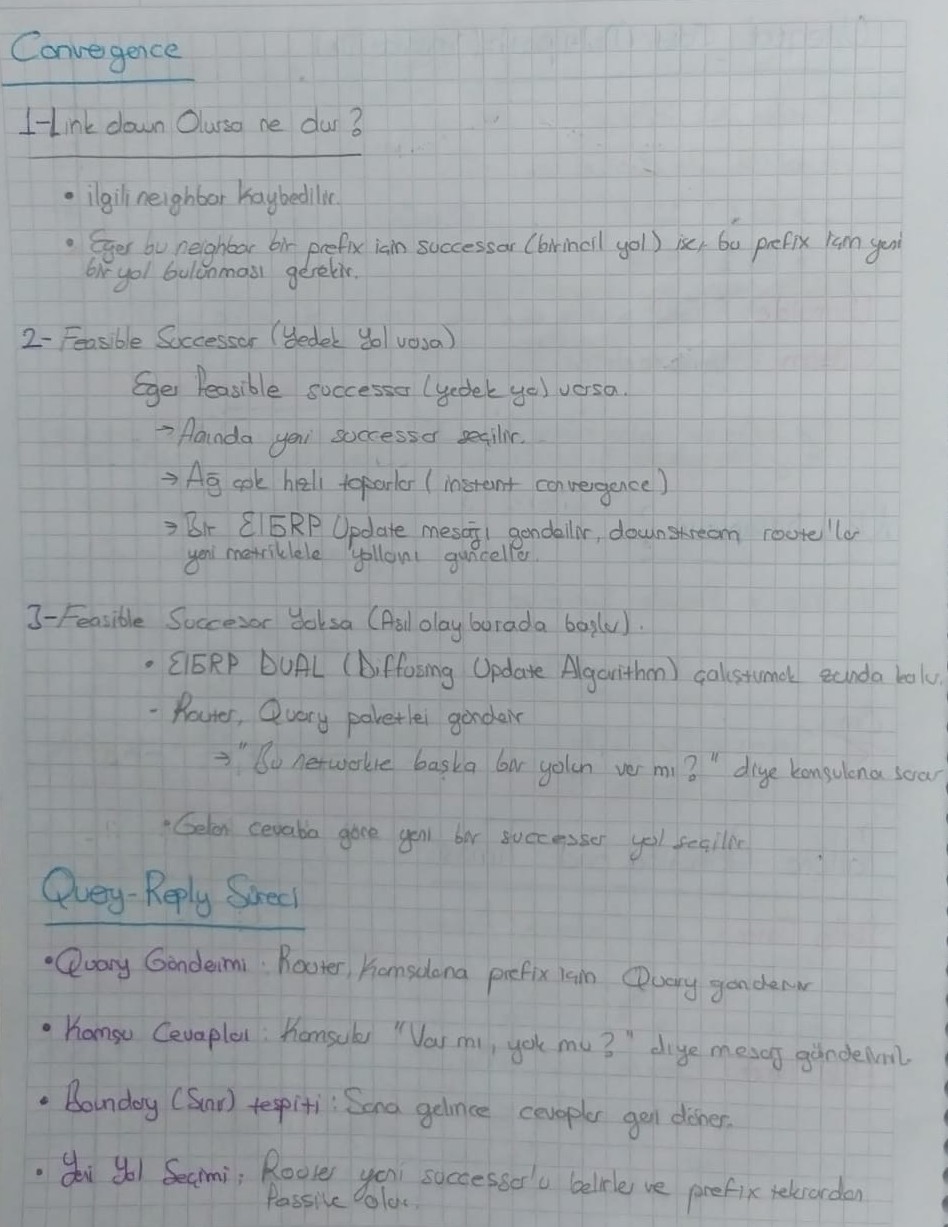 Convergence
1-Link down Olursa ne olur?
• ilgili neighbor Kaybedilir.
• Eğer bu neighbor bir prefix için successor (birincil yol) ise, bu prefix için yeni
bir yol bulunması gerekir.
2- Feasible Successor (Yedek Yol varsa)
Eğer feasible successor (yedek yol) varsa.
→ Anında yeni successor seçilir.
→ Ağ çok hızlı toparlar (instant convergence)
→ Bir EIGRP Update mesajı gönderilir, downstream router'lar
yeni metriklerle yollarını günceller.
3-Feasible Succesor Yoksa (Asıl olay burada başlar).
• EIGRP DUAL (Diffusing Update Algorithm) çalıştırmak zorunda kalır.
- Router, Query paketleri gönderir
→ "Bu networke başka bir yolun var mı?" diye komşularına sorar
• Gelen cevaba göre yeni bir successor yol seçilir
Query-Reply Süreci
• Quary Gönderimi : Router, Komşularına prefix için Quary gönderir
• Komşu Cevapları : Komşular "Var mı, yok mu?" diye mesaj gönderir.
• Boundary (Sınır) tespiti : Sona gelince cevaplar geri döner.
• Yeni Yol Seçimi : Router yeni successor'u belirler ve prefix tekrardan
Passive olur.